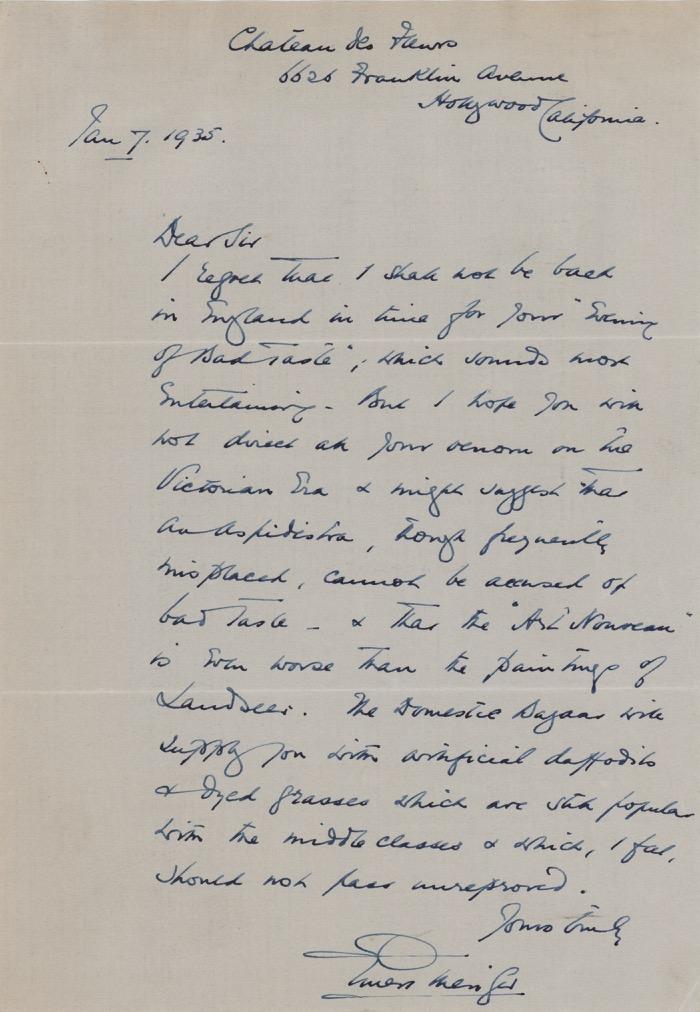 Chateau des Fleurs
6626 Franklin Avenue
Hollywood California.
Jan 7. 1935.
Dear Sir
I regret that I shall not be back
in England in time for your "Evening
of Bad Taste", which sounds most
Entertaining - But I hope you will
not direct all your venom on the
Victorian Era & might suggest that
an Aspidistra, though frequently
misplaced, cannot be accused of
bad taste - & that the "Art Nouveau"
is even worse than the paintings of
Landseer. The Domestic Bazaar will
supply you with artificial daffodils
& dyed grasses which are still popular
with the middle classes & which, I feel,
should not pass unreproved.
Yours truly